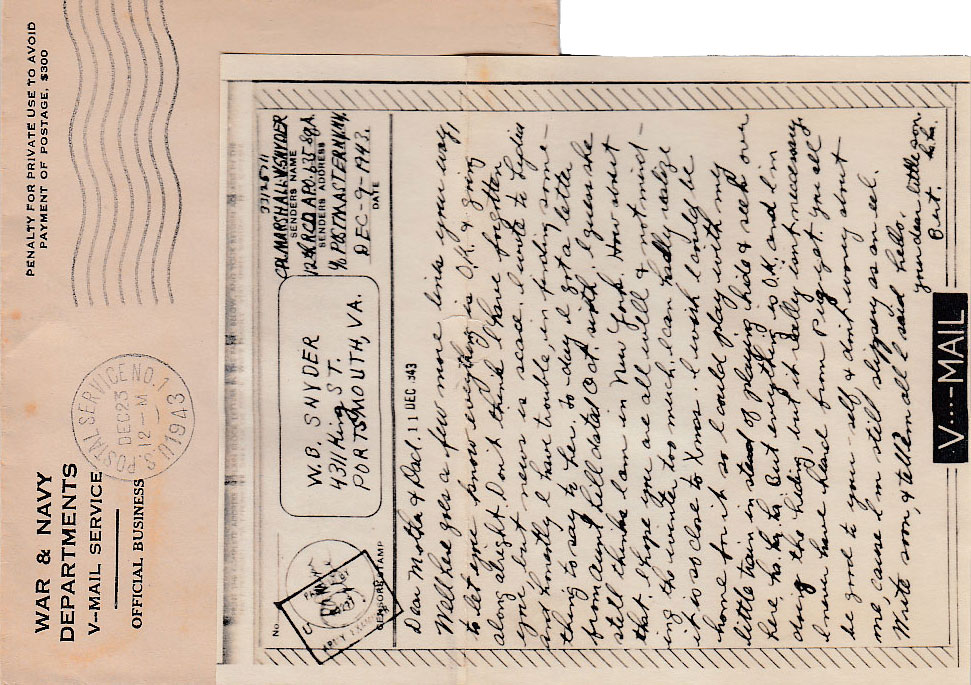 WAR & NAVY
DEPARTMENTS
V-MAIL SERVICE
OFFICIAL BUSINESS
U.S. POSTAL SERVICE NO. 1
DEC 23
12-M
1943
PENALTY FOR PRIVATE USE TO AVOID
PAYMENT OF POSTAGE, $300
No.
CENSOR'S STAMP
W.B. SNYDER
4311 King ST.
PORTSMOUTH, VA.
CPL MARSHALL V. SNYDER
SENDERS NAME
SENDERS ADDRESS
% POSTMASTER N.Y. N.Y.
DEC-9-1943.
DATE
11 DEC 943
Dear Mother & Dad.
Well here goes a few more lines your way
to let you know everything is O.K. & going
along alright. Don't think I have forgotten
you, but news is scarce. I wrote to Lydia
and honestly I have trouble in finding some-
thing to say to her. To-day I got a letter
from aunt Nell dated Oct. sixth. I guess she
still thinks I am in New York. How about
that. I hope you are all well & not mind-
ing the winter too much. I can hardly realize
it is so close to Xmas. I wish I could be
home for it so I could play with my
little train in stead of playing hide & seek over
here, ha. ha. ha. But everything is O.K. and I'm
doing the hiding, but it really isn't necessary.
I never have heard from Piggy yet. you all
be good to your-self & don't worry about
me cause I'm still slippery as an eel.
Write soon, & tell them all I said hello.
your dear little son.
ha. ha.
Burt.
V···-MAIL